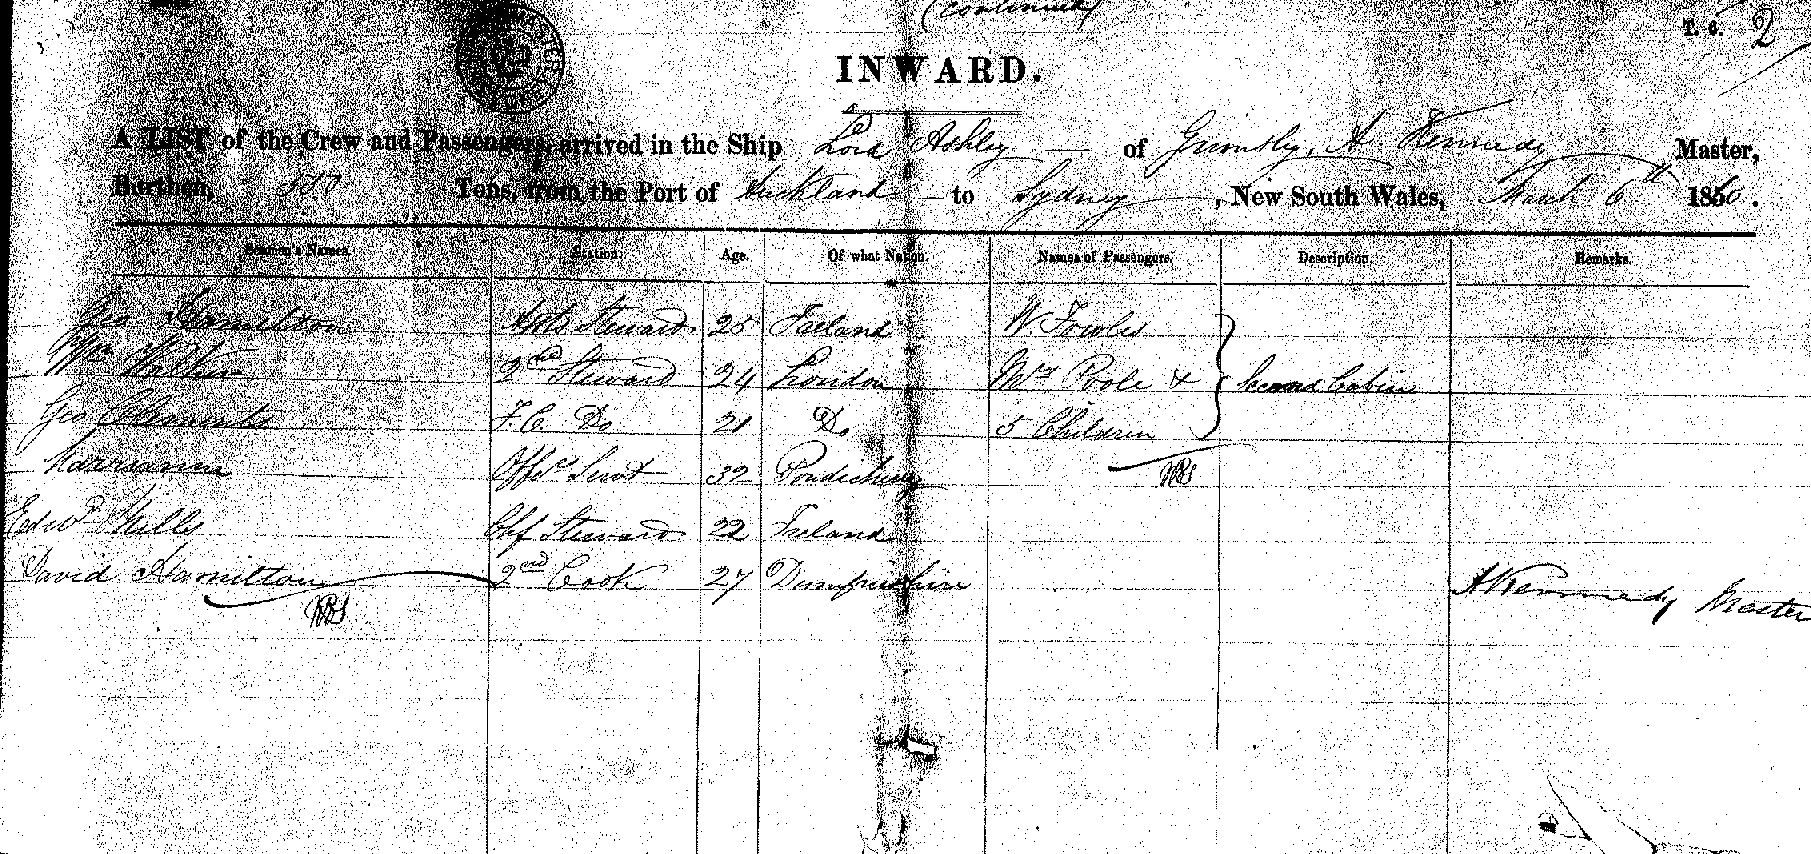 (continued)
T. 6. 2
INWARD.
A LIST of the Crew and Passengers, arrived in the Ship Lord Ashley of Grimsby, A. Kennedy Master,
Burthen, Tons, from the Port of Auckland to Sydney, New South Wales, March 6th 1860.
Seamen's Names. Station. Age. Of what Nation. Names of Passengers. Description. Remarks.
Geo Hamilton Steward 25 Ireland W Fowles
Wm 2nd Steward 24 London Mrs Poole & Second Cabin
Geo F. C. Do 21 Do 5 Children
Offrs Servt 32 Pondicherry
Edwd Mills Chf Steward 22 Ireland
David Hamilton 2nd Cook 27 Dumfrieshire A Kennedy Master